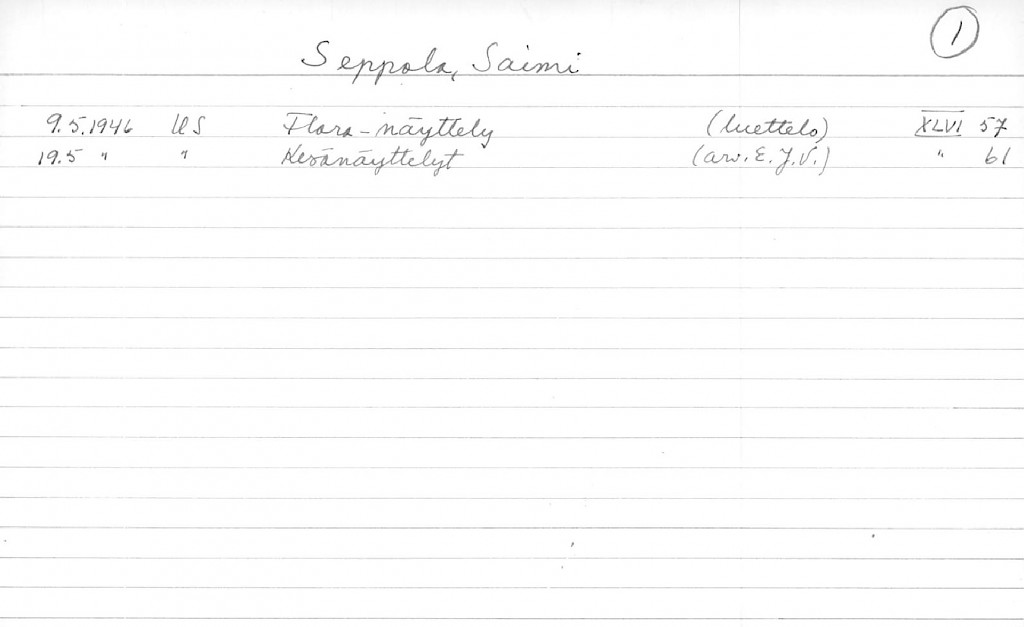 1
Seppola, Saimi
9.5.1946 US Flora-näyttely (luettelo) XLVI 57
19.5 " " Kesänäyttelyt (arv. E.J.V.) " 61